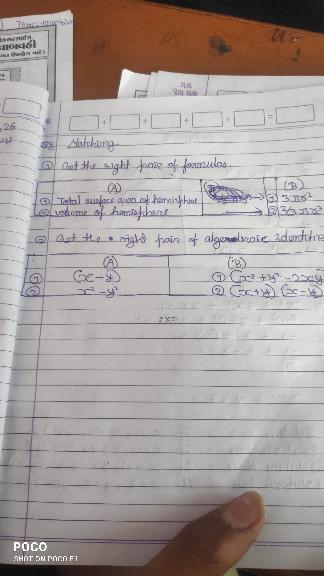 વાબવહી
26
+ + + + + =
Matching.
① Get the right pair of formulas
(A) (B)
① Total surface area of hemisphere → ① 3πr²
② volume of hemisphere → ② 2/3 πr³
② Get the right pair of algebraic identities
(A) (B)
① (x-y) ① (x²+y²-2xy
② x²-y² ② (x+y) (x-y)
POCO
SHOT ON POCO F1